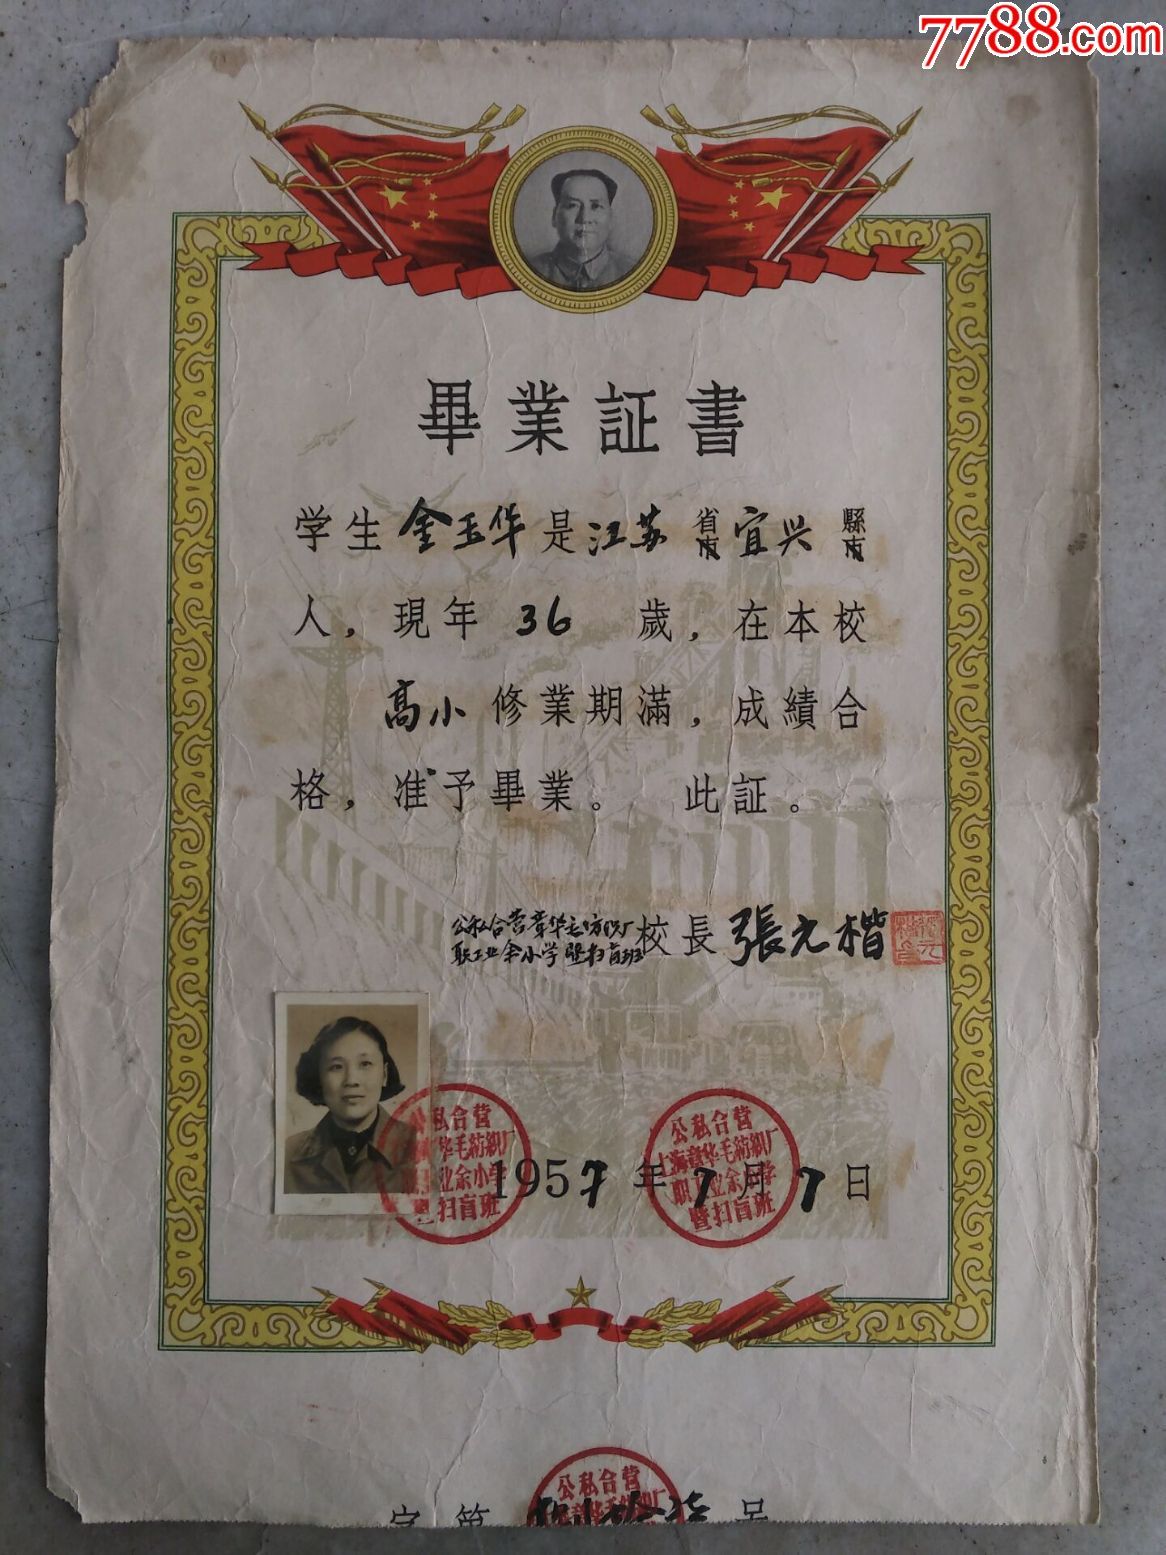 7788.com
畢業証書
学生 金玉华 是 江苏 省市 宜兴 縣市
人，現年 36 歲，在本校
高小 修業期滿，成績合
格，准予畢業。 此証。
公私合营章华毛纺织厂
职工业余小学暨扫盲班 校長 張元楷
公私合营
华毛纺織厂
业余小学
扫盲班
公私合营
上海章华毛纺織厂
职工业余小学
暨扫盲班
1957 年 7 月 7 日
公私合营
章华毛纺织厂
字第 号